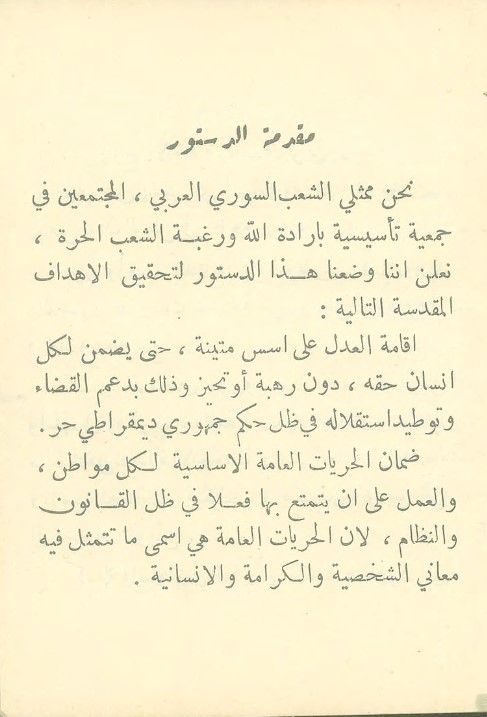 مقدمة الدستور
نحن ممثلي الشعب السوري العربي ، المجتمعين في
جمعية تأسيسية بارادة الله ورغبة الشعب الحرة ،
نعلن اننا وضعنا هذا الدستور لتحقيق الاهداف
المقدسة التالية :
اقامة العدل على اسس متينة ، حتى يضمن لكل
انسان حقه ، دون رهبة أو تحيز وذلك بدعم القضاء
وتوطيد استقلاله في ظل حكم جمهوري ديمقراطي حر .
ضمان الحريات العامة الاساسية لكل مواطن ،
والعمل على ان يتمتع بها فعلا في ظل القانون
والنظام ، لان الحريات العامة هي اسمى ما تتمثل فيه
معاني الشخصية والكرامة والانسانية .